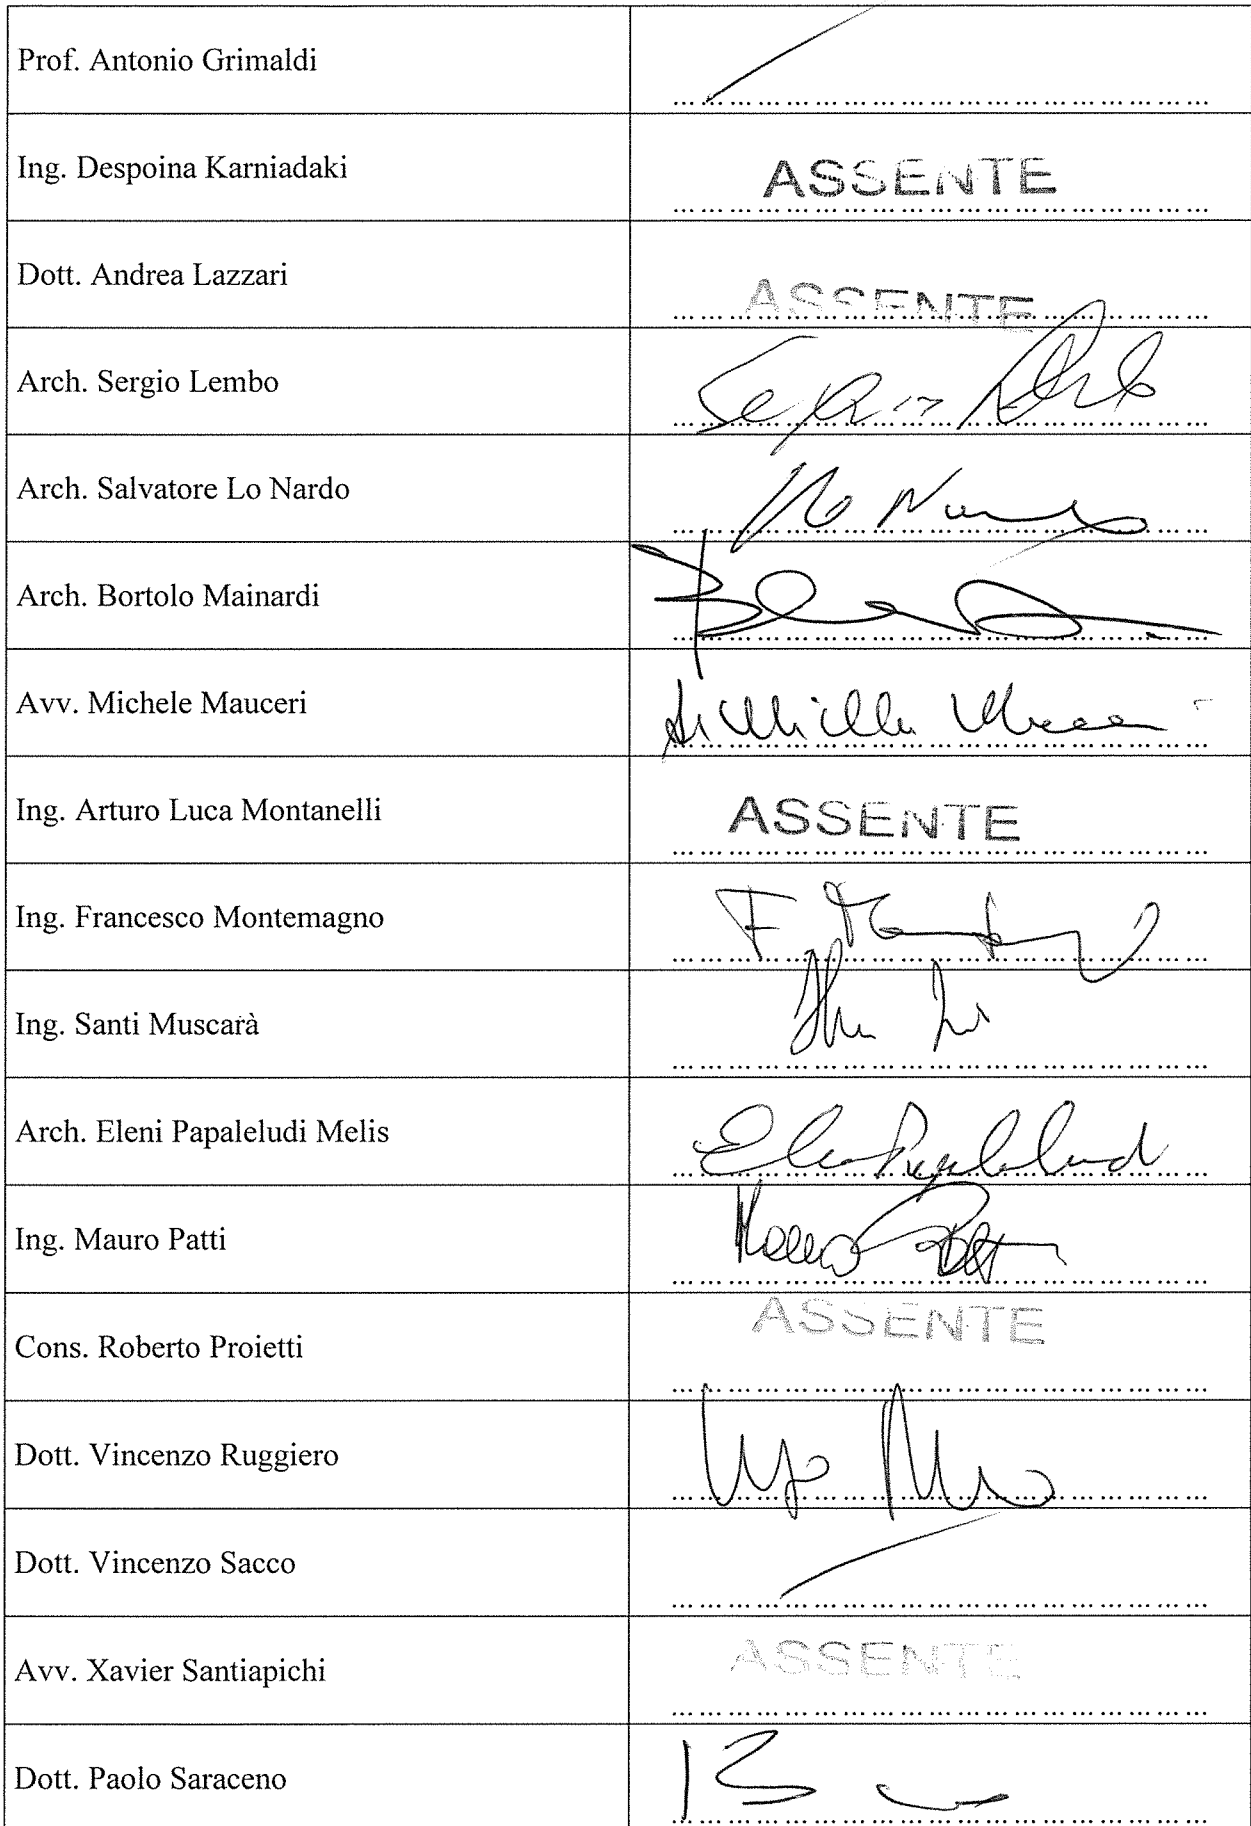 Prof. Antonio Grimaldi
Ing. Despoina Karniadaki
ASSENTE
Dott. Andrea Lazzari
ASSENTE
Arch. Sergio Lembo
Arch. Salvatore Lo Nardo
Arch. Bortolo Mainardi
Avv. Michele Mauceri
Ing. Arturo Luca Montanelli
ASSENTE
Ing. Francesco Montemagno
Ing. Santi Muscarà
Arch. Eleni Papaleludi Melis
Ing. Mauro Patti
Cons. Roberto Proietti
ASSENTE
Dott. Vincenzo Ruggiero
Dott. Vincenzo Sacco
Avv. Xavier Santiapichi
ASSENTE
Dott. Paolo Saraceno